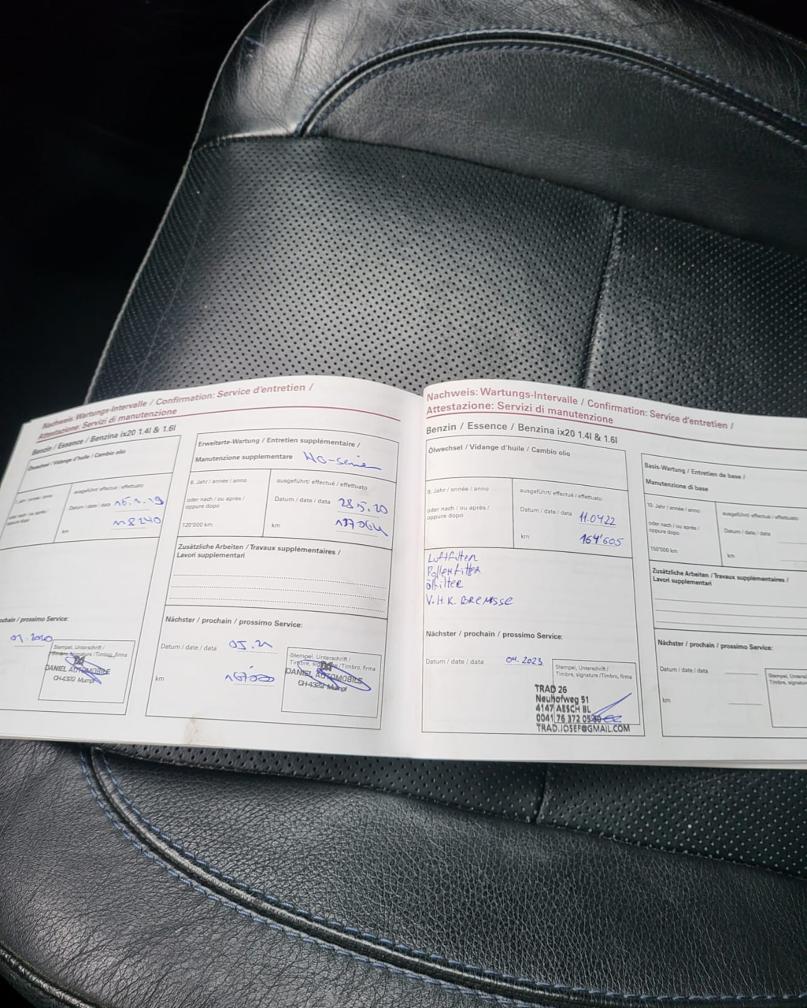 Nachweis: Wartungs-Intervalle / Confirmation: Service d'entretien /
Attestazione: Servizi di manutenzione
Benzin / Essence / Benzina ix20 1.4l & 1.6l
Ölwechsel / Vidange d'huile / Cambio olio
ausgeführt/ effectué / effettuato
oder nach / ou après /
oppure dopo
Datum / date / data
km
Stempel, Unterschrift /
Timbre, signature / Timbro, firma
DANIEL AUTOMOBILE
CH-4322 Mumpf
Erweiterte-Wartung / Entretien supplémentaire /
Manutenzione supplementare
8. Jahr / année / anno
ausgeführt/ effectué / effettuato
oder nach / ou après /
oppure dopo
Datum / date / data 28.5.20
120'000 km
km 137064
Zusätzliche Arbeiten / Travaux supplémentaires /
Lavori supplementari
Nächster / prochain / prossimo Service:
Datum / date / data 05.21
km
Stempel, Unterschrift /
Timbre, signature / Timbro, firma
DANIEL AUTOMOBILE
CH-4322 Mumpf
Nachweis: Wartungs-Intervalle / Confirmation: Service d'entretien /
Attestazione: Servizi di manutenzione
Benzin / Essence / Benzina ix20 1.4l & 1.6l
Ölwechsel / Vidange d'huile / Cambio olio
9. Jahr / année / anno
ausgeführt/ effectué / effettuato
oder nach / ou après /
oppure dopo
Datum / date / data 11.04.22
km 164'605
Luftfilter
Pollenfilter
ölfilter
V.H.K. BREMSSE
Nächster / prochain / prossimo Service:
Datum / date / data 04.2023
Stempel, Unterschrift /
Timbre, signature / Timbro, firma
TRAD 26
Neuhofweg 51
4147 AESCH BL
0041 76 372 05
TRAD.JOSEF@GMAIL.COM
Basis-Wartung / Entretien de base /
Manutenzione di base
10. Jahr / année / anno
ausgeführt/ effectué / effettuato
oder nach / ou après /
oppure dopo
Datum / date / data
150'000 km
km
Zusätzliche Arbeiten / Travaux supplémentaires /
Lavori supplementari
Nächster / prochain / prossimo Service:
Datum / date / data
km